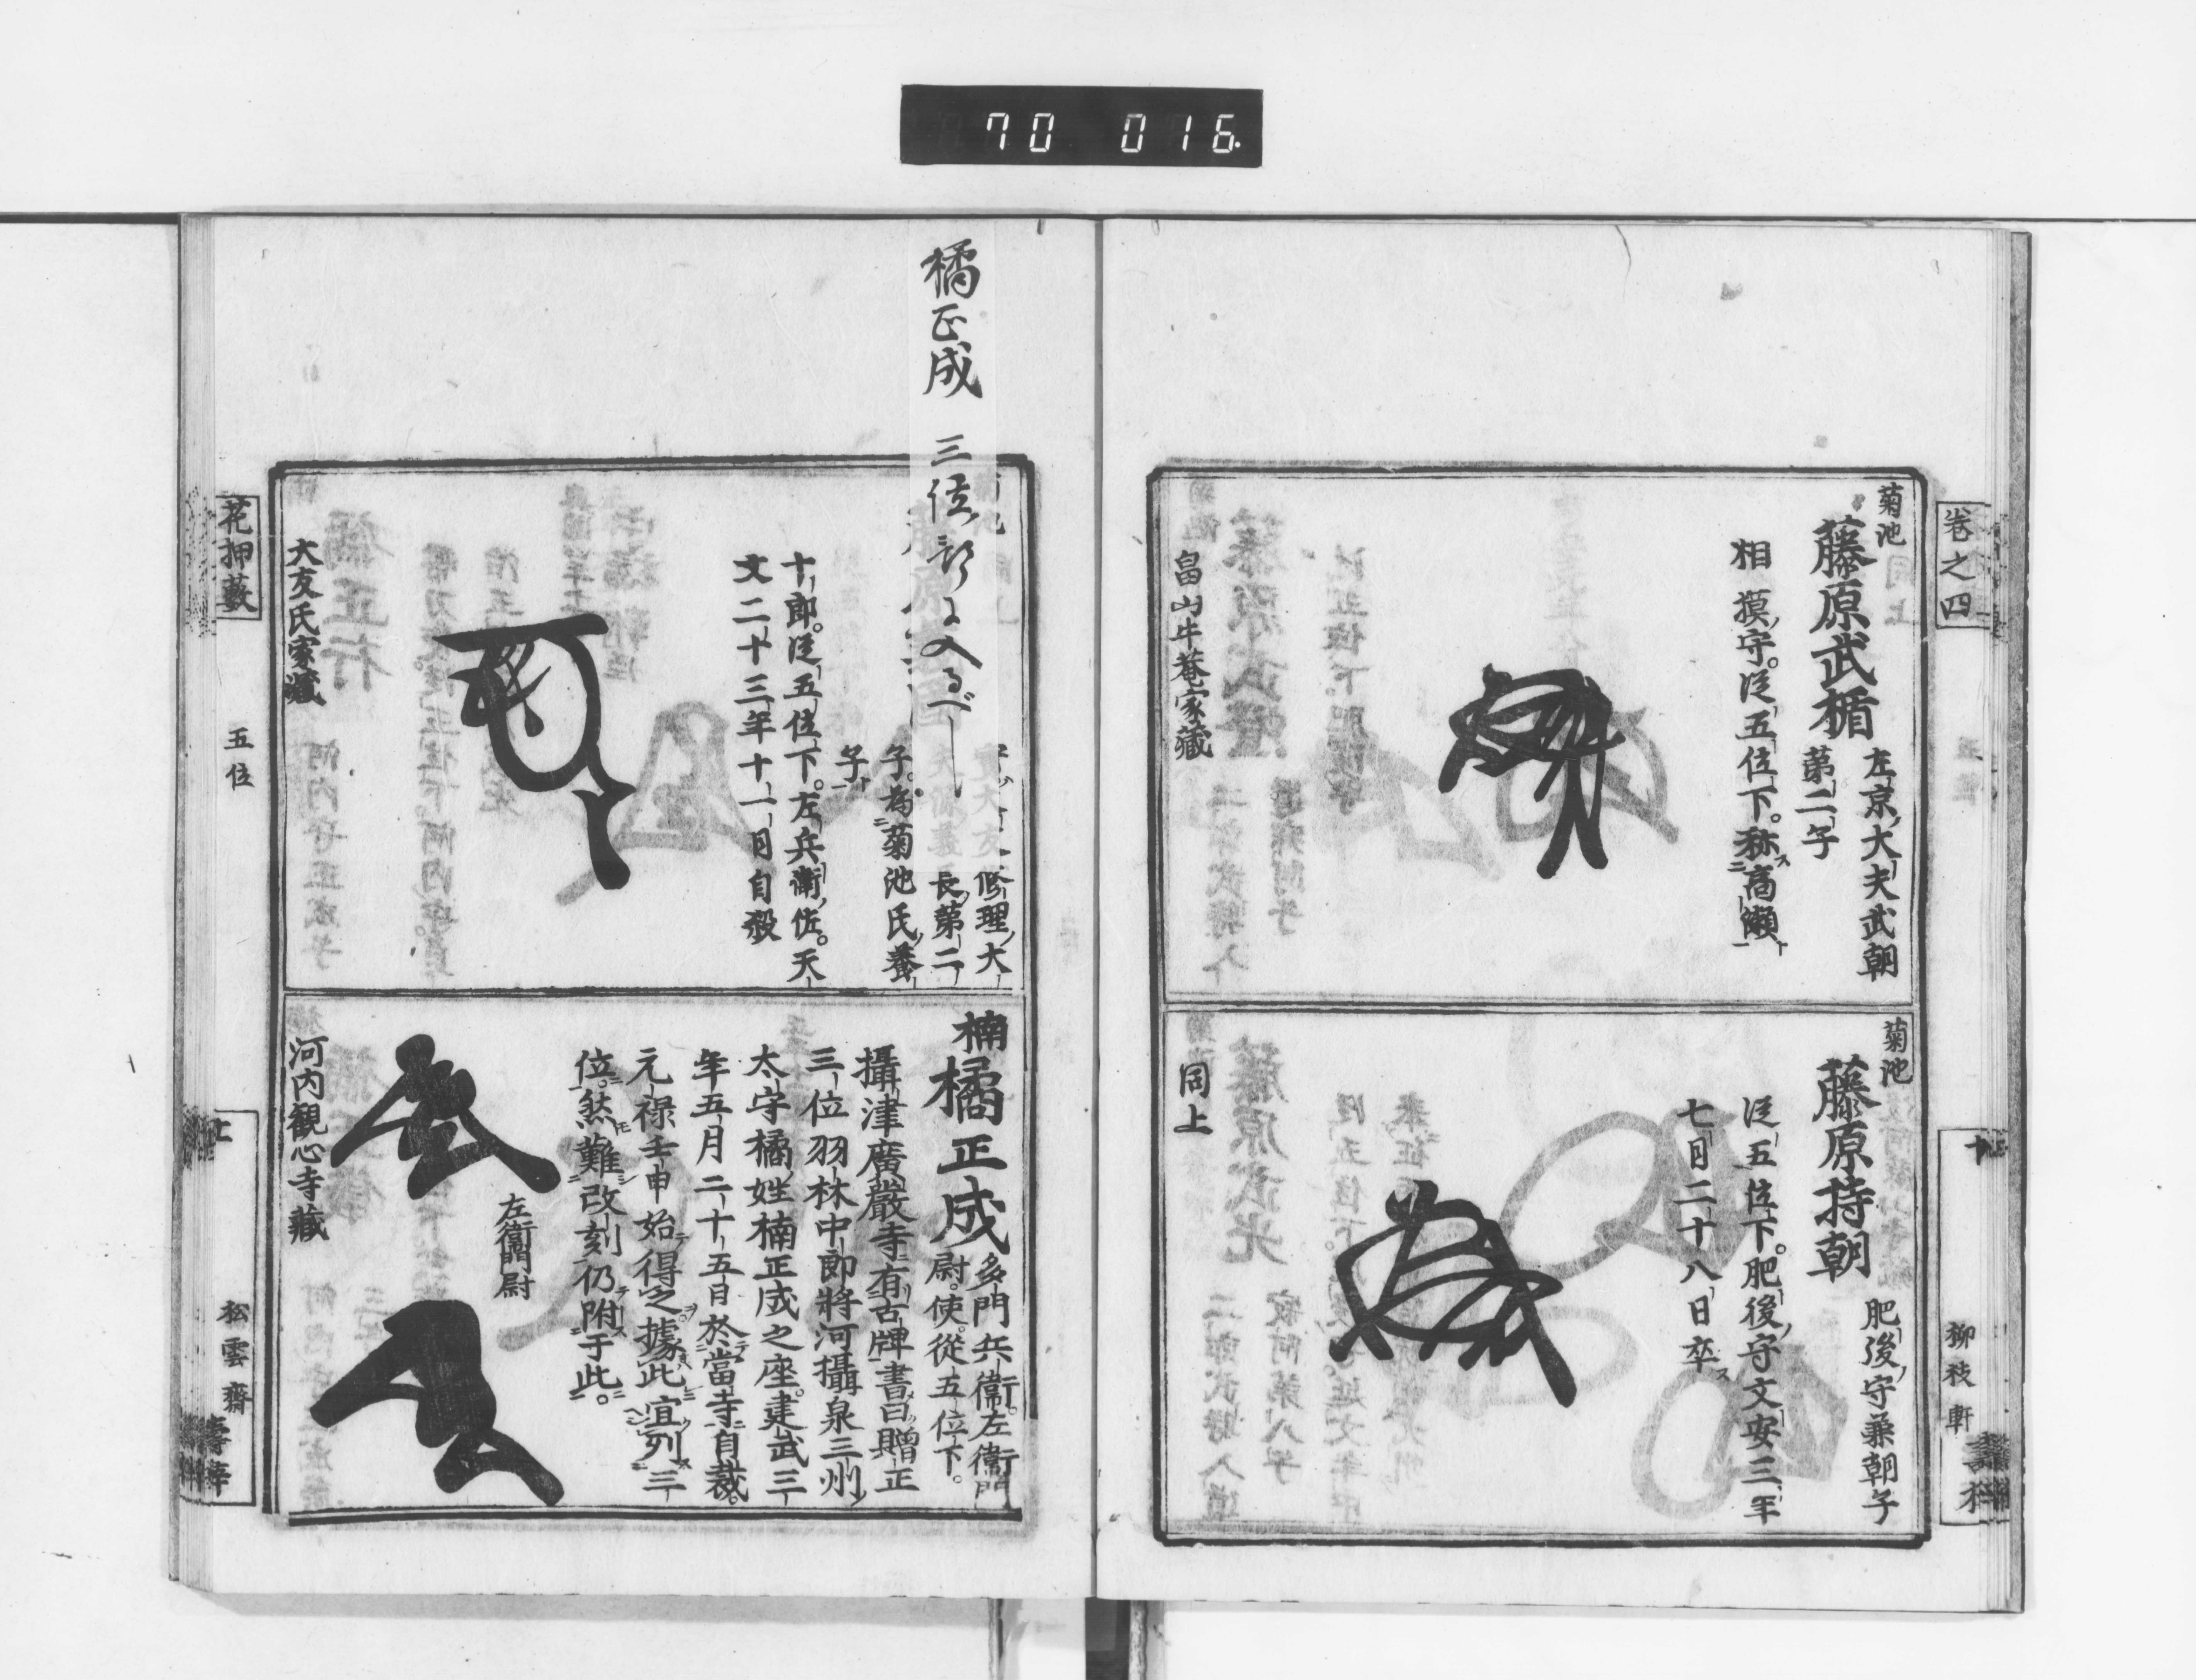 70 016
卷之四
十
柳枝軒
菊池
藤原武楯
左京大夫武朝
第二子
相摸守。従五位下。称高瀬
畠山牛菴家藏
菊池
藤原持朝
肥後守兼朝子
従五位下。肥後守文安三年
七月二十八日卒
同上
橘正成 三位部に入るべし
修理大
長第二
子。為菊池氏養
子
十郎。従五位下。左兵衛佐。天
文二十三年十一月自殺
大友氏家藏
楠
橘正成
多門兵衛。左衛門
尉。使。從五位下。
攝津廣嚴寺有古牌書曰贈正
三位羽林中郎將河攝泉三州
太守橘姓楠正成之座。建武三
年五月二十五日於當寺自裁。
元禄壬申始得之據此宜列三
位。然難改刻仍附于此。
左衛門尉
河内観心寺藏
花押藪
五位
松雲齋